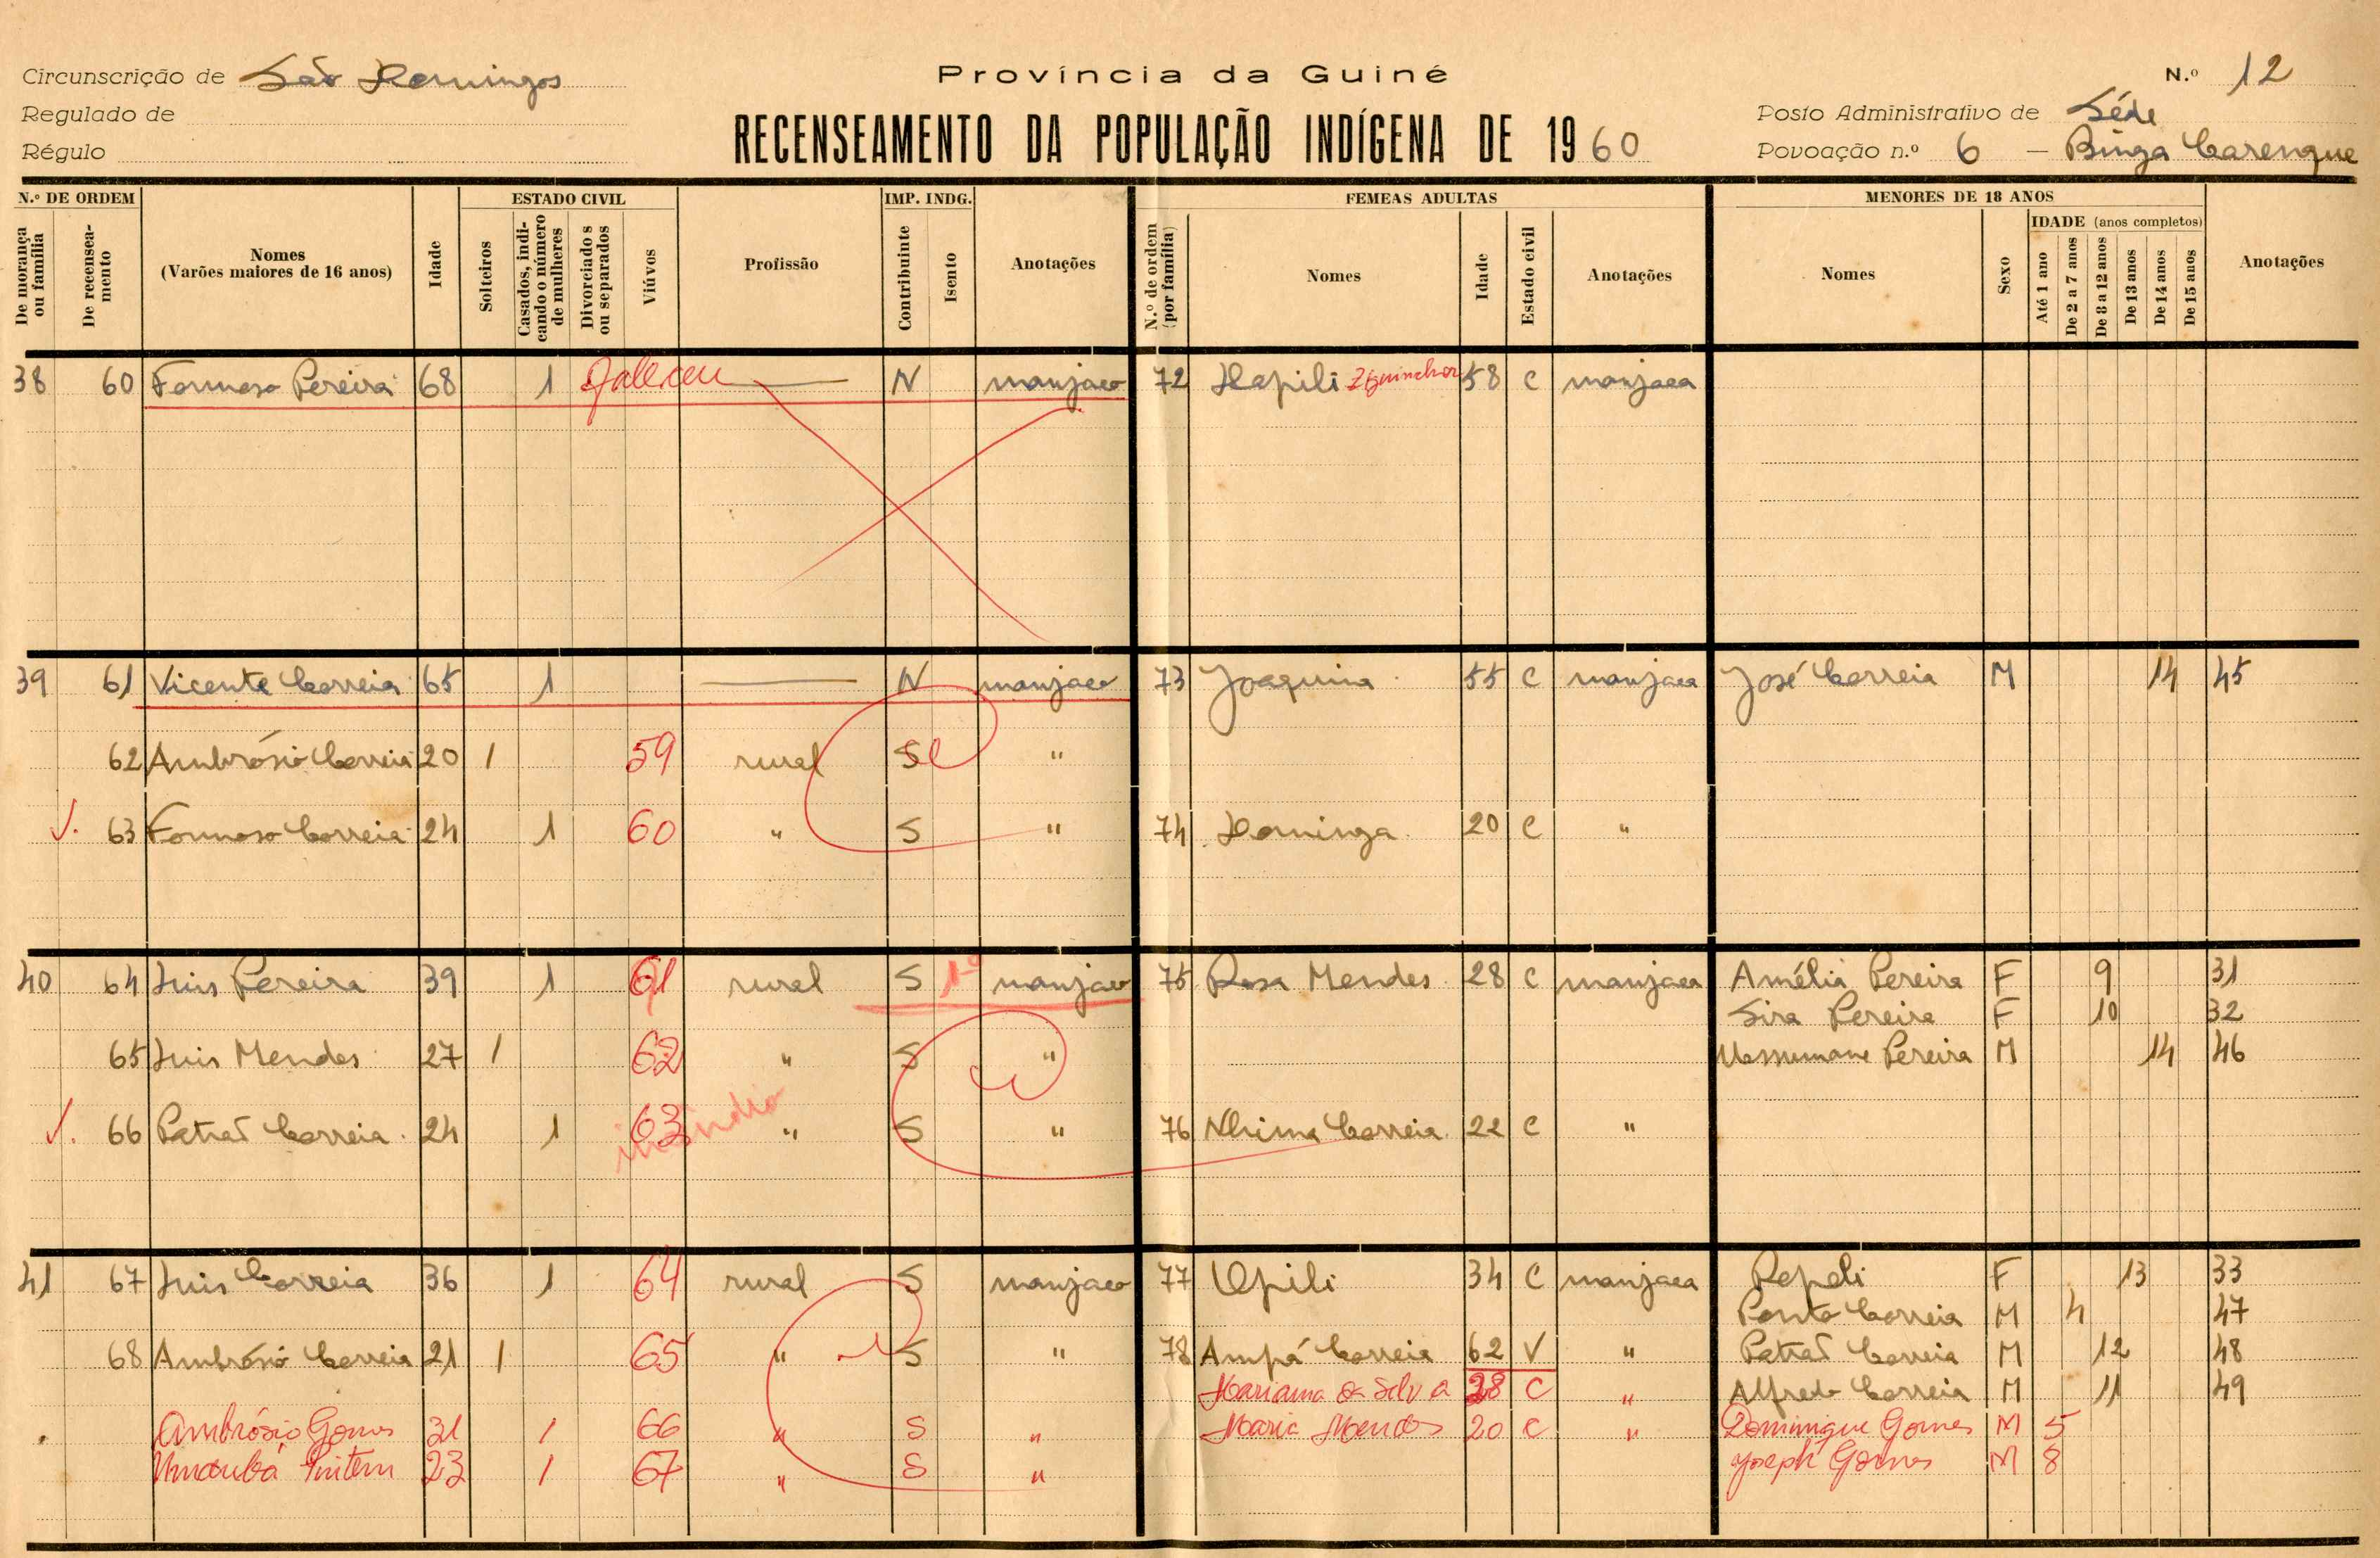 Província da Guiné
Circunscrição de São Domingos
N.º 12
Regulado de
Posto Administrativo de Séde
RECENSEAMENTO DA POPULAÇÃO INDÍGENA DE 1960
Régulo
Povoação n.º 6 — Binga Carenque
N.º DE ORDEM ESTADO CIVIL IMP. INDG. FEMEAS ADULTAS MENORES DE 18 ANOS
De morança ou família
De recenseamento
Nomes
(Varões maiores de 16 anos)
Idade
Solteiros
Casados, indicando o número de mulheres
Divorciados ou separados
Viúvos
Profissão
Contribuinte
Isento
Anotações
N.º de ordem (por família)
Nomes
Idade
Estado civil
Anotações
Nomes
Sexo
IDADE (anos completos)
Até 1 ano
De 2 a 7 anos
De 8 a 12 anos
De 13 anos
De 14 anos
De 15 anos
Anotações
38 60 Formoso Pereira 68 1 Faleceu — N manjaco 72 Hapili Ziguinchor 58 C manjaca
39 61 Vicente Correia 65 1 — N manjaco 73 Joaquina 55 C manjaca José Correia M 14 45
62 Ambrósio Correia 20 1 59 rural S "
63 Formoso Correia 24 1 60 " S " 74 Dominga 20 C "
40 64 Luis Pereira 39 1 61 rural S 1º manjaco 75 Rosa Mendes 28 C manjaca Amélia Pereira F 9 31
Sira Pereira F 10 32
65 Luis Mendes 27 1 62 " S " Pereira M 14 46
66 Patrão Correia 24 1 63 " S " 76 Nhima Correia 22 C "
41 67 Luis Correia 36 1 64 rural S manjaco 77 Upili 34 C manjaca Pepeli F 13 33
Ponto Correia M 4 47
68 Ambrósio Correia 21 1 65 " S " 78 Ampá Correia 62 V " Patrão Correia M 12 48
Mariama da Silva 28 C " Alfredo Correia M 11 49
Ambrósio Gomes 31 1 66 " S " Maria Mendes 20 C " Dominique Gomes M 5
23 1 67 " S " Joseph Gomes M 8